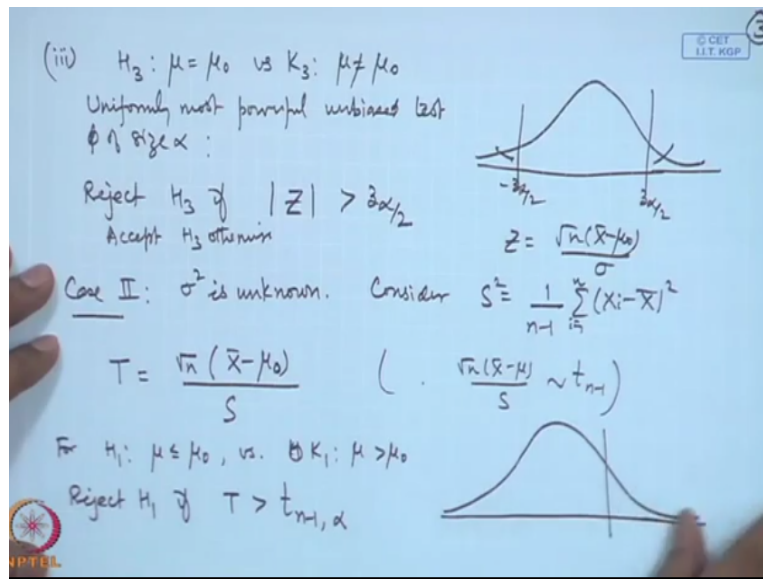 3
© CET
I.I.T. KGP
(iii) H₃ : μ = μ₀ vs K₃ : μ ≠ μ₀
Uniformly most powerful unbiased test
ϕ of size α :
Reject H₃ if |Z| > z_{α/2}
Accept H₃ otherwise
-z_{α/2} z_{α/2}
Z = √n(X̄-μ₀)/σ
Case II : σ² is unknown. Consider S² = 1/(n-1) ∑_{i=1}^{n} (Xi-X̄)²
T = √n(X̄-μ₀)/S ( . √n(X̄-μ)/S ~ t_{n-1} )
For H₁ : μ ≤ μ₀, vs. K₁ : μ > μ₀
Reject H₁ if T > t_{n-1, α}
NPTEL